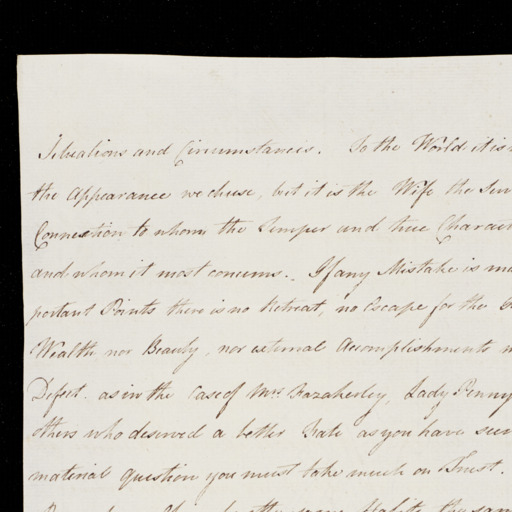 Situations and Circumstances. To the World it is
the Appearance we chuse, but it is the Wife the
Connection to whom the Temper and true Charac
and whom it most concerns. If any Mistake is ma
portant Points there is no Retreat, no Escape for the
Wealth nor Beauty, nor external Accomplishments
Defect. as in the Case of Mrs Fazakerley, Lady Penny
others who deserved a better Fate as you have seen
material question you must take much on Trust.